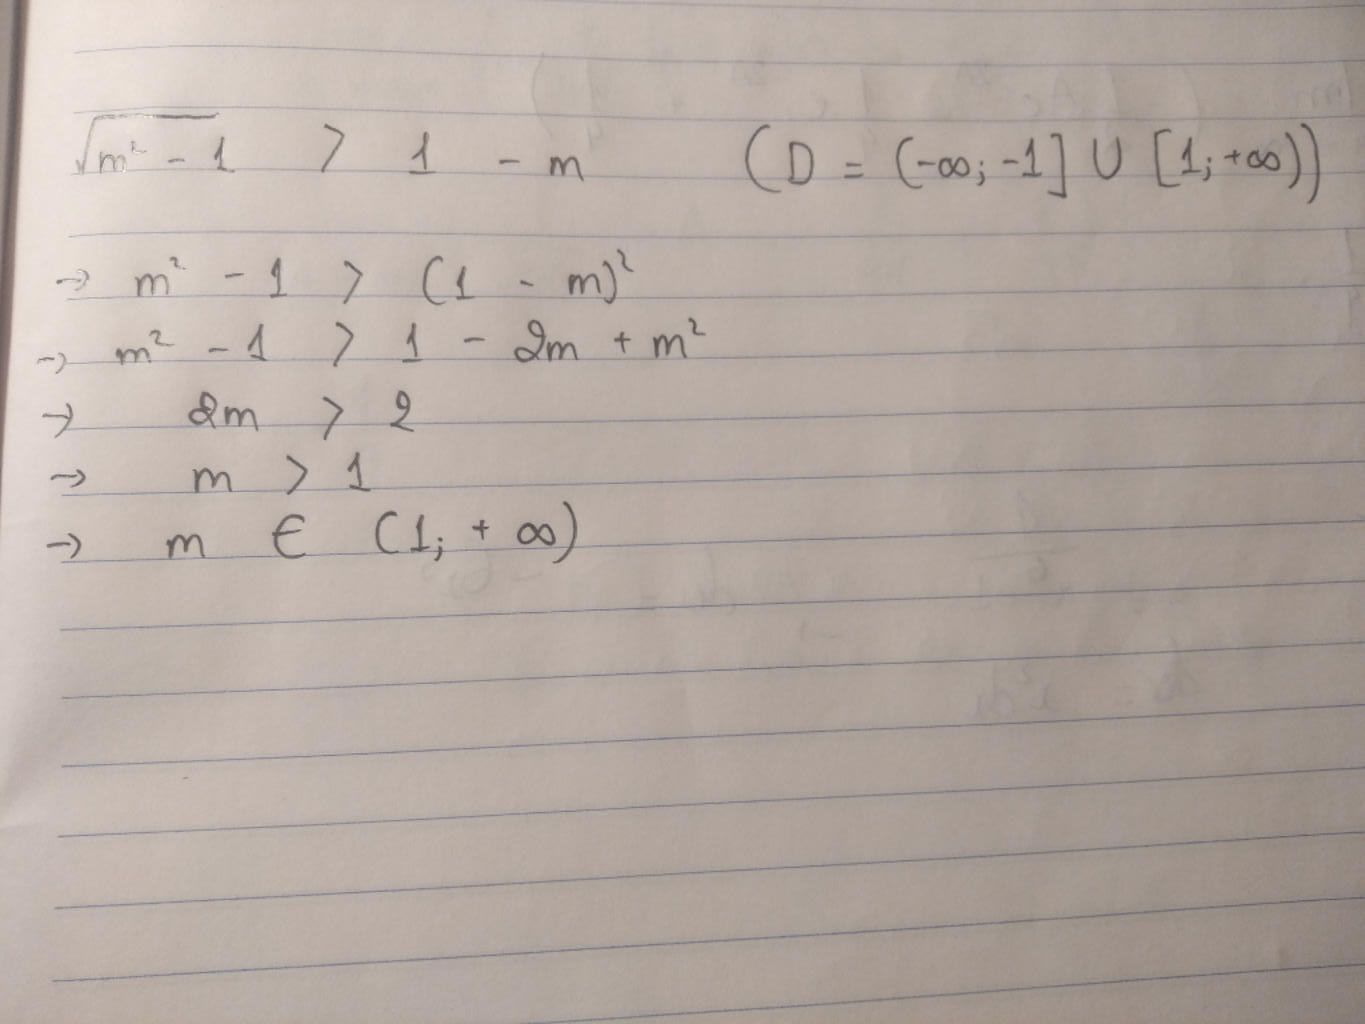 √(m² - 1) > 1 - m (D = (-∞; -1] ∪ [1; +∞))
→ m² - 1 > (1 - m)²
→ m² - 1 > 1 - 2m + m²
→ 2m > 2
→ m > 1
→ m ∈ (1; + ∞)